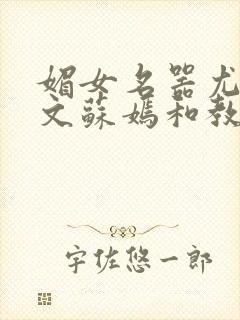 媚女名器尤
文蘇媽和教
宇佐悠一郎